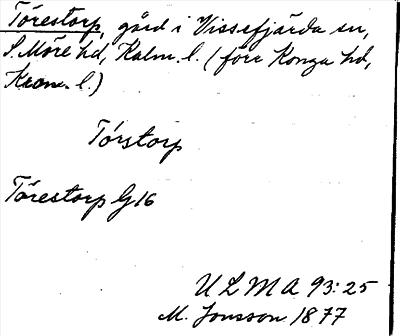 Törestorp, gård i Vissefjärda sn,
S. Möre hd, Kalm. l. (förr Konga hd,
Kron. l.)
Törstorp
Törestorp G16
ULMA 93:25
M. Jonsson 1877